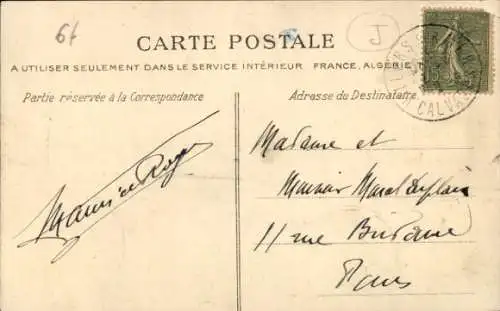 6f
J
CARTE POSTALE
A UTILISER SEULEMENT DANS LE SERVICE INTÉRIEUR FRANCE, ALGÉRIE
Partie réservée à la Correspondance
Adresse du Destinataire
CALVADOS
Maurice Roger
Madame et
Monsieur Marcel
11 rue
Paris